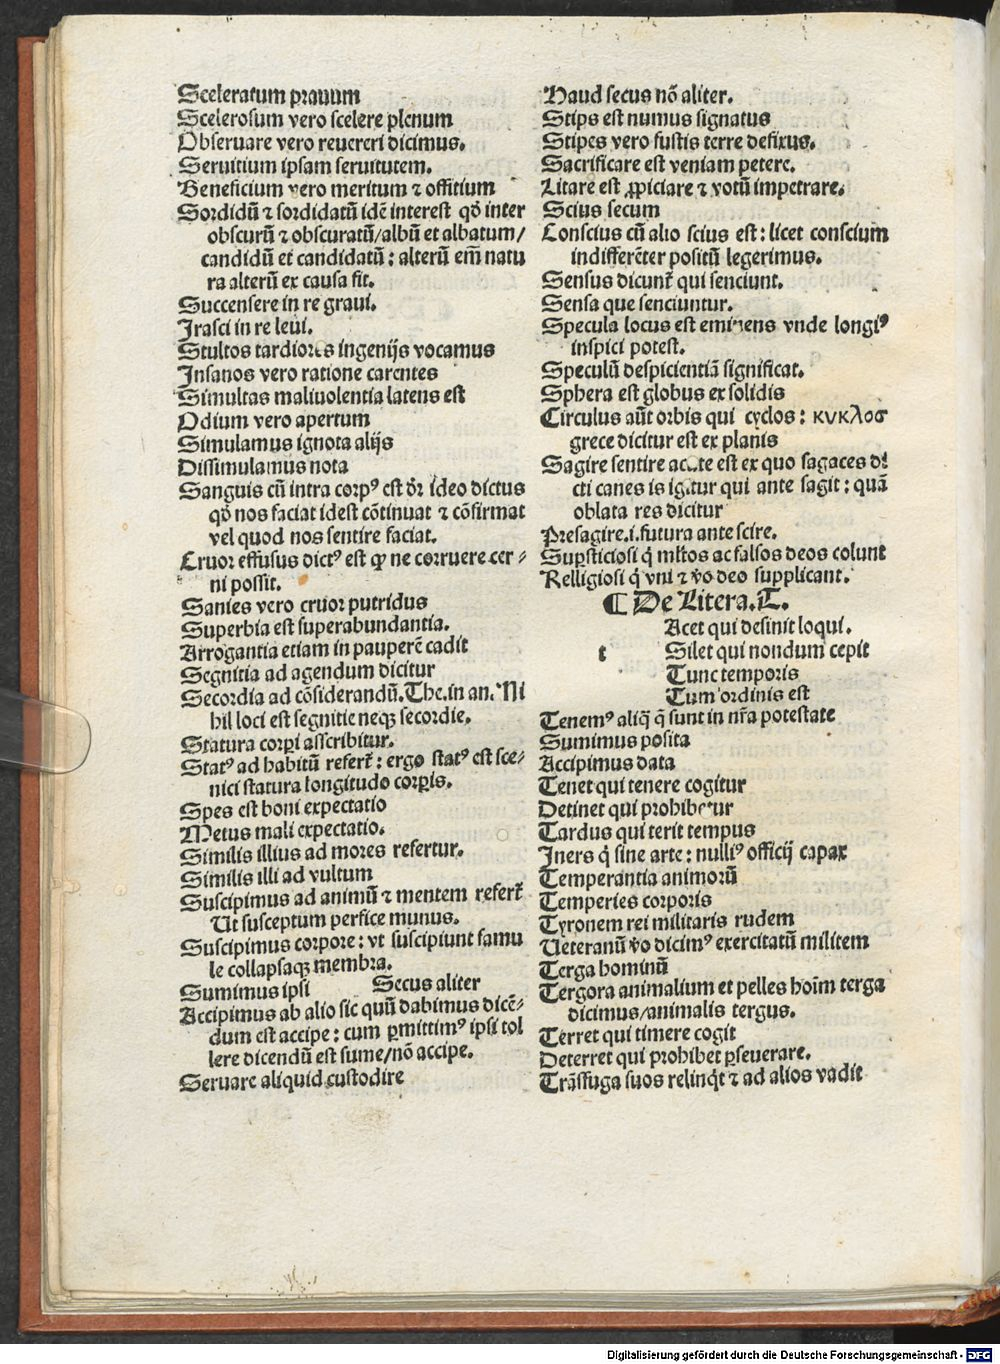 Sceleratum prauum
Scelerosum vero scelere plenum
Obseruare vero reuereri dicimus.
Seruitium ipsam seruitutem.
Beneficium vero meritum ⁊ offitium
Sordidū ⁊ sordidatū idē interest qd̓ inter
obscurū ⁊ obscuratū/albū et albatum/
candidū et candidatū: alterū em̄ natu
ra alterū ex causa fit.
Succensere in re graui.
Irasci in re leui.
Stultos tardiores ingenijs vocamus
Insanos vero ratione carentes
Simultas maliuolentia latens est
Odium vero apertum
Simulamus ignota alijs
Dissimulamus nota
Sanguis cū intra corpꝰ est dr̄ ideo dictus
qd̓ nos faciat idest cōtinuat ⁊ cōfirmat
vel quod nos sentire faciat.
Cruor effusus dictꝰ est ꝙ ne corruere cer⸗
ni possit.
Sanies vero cruor putridus
Superbia est superabundantia.
Arrogantia etiam in pauperē cadit
Segnitia ad agendum dicitur
Secordia ad cōsiderandū. The. in an. Ni
hil loci est segnitie neqꝫ secordie.
Statura corpi asscribitur.
Statꝰ ad habitū refert̄: ergo statꝰ est sce⸗
nici statura longitudo corꝑis.
Spes est boni expectatio
Metus mali expectatio.
Similis illius ad mores refertur.
Similis illi ad vultum
Suscipimus ad animū ⁊ mentem refert̄
Ut susceptum perfice munus.
Suscipimus corpore: vt suscipiunt famu
le collapsaqꝫ membra.
Sumimus ipsi Secus aliter
Accipimus ab alio sic quū dabimus dicē⸗
dum est accipe: cum ꝑmittimꝰ ipsi tol
lere dicendū est sume/nō accipe.
Seruare aliquid custodire
Haud secus nō aliter.
Stips est numus signatus
Stipes vero fustis terre defixus.
Sacrificare est veniam petere.
Litare est ꝓpiciare ⁊ votū impetrare.
Scius secum
Conscius cū alio scius est: licet conscium
indifferēter positū legerimus.
Sensus dicunt̄ qui senciunt.
Sensa que senciuntur.
Specula locus est eminens vnde longiꝰ
inspici potest.
Speculū despicientiā significat.
Sphera est globus ex solidis
Circulus aūt orbis qui cyclos: κυκλοσ
grece dicitur est ex planis
Sagire sentire acute est ex quo sagaces di
cti canes is igitur qui ante sagit: quā
oblata res dicitur
Presagire .i. futura ante scire.
Suꝑsticiosi q̇ mltos ac falsos deos colunt
Relligiosi q̇ vni ⁊ vo deo supplicant.
¶ De Litera. T.
Acet qui desinit loqui.
t Silet qui nondum cepit
Tunc temporis
Tum ordinis est
Tenemꝰ aliq̄ q̄ sunt in nr̄a potestate
Sumimus posita
Accipimus data
Tenet qui tenere cogitur
Detinet qui prohibetur
Tardus qui terit tempus
Iners q̇ sine arte: nulliꝰ officij capax
Temperantia animorū
Temperies corporis
Tyronem rei militaris rudem
Ueteranū vo dicimꝰ exercitatū militem
Terga hominū
Tergora animalium et pelles hoīm terga
dicimus/animalis tergus.
Terret qui timere cogit
Deterret qui prohibet ꝑseuerare.
Trāsfuga suos relinq̇t ⁊ ad alios vadit
Digitalisierung gefördert durch die Deutsche Forschungsgemeinschaft - DFG